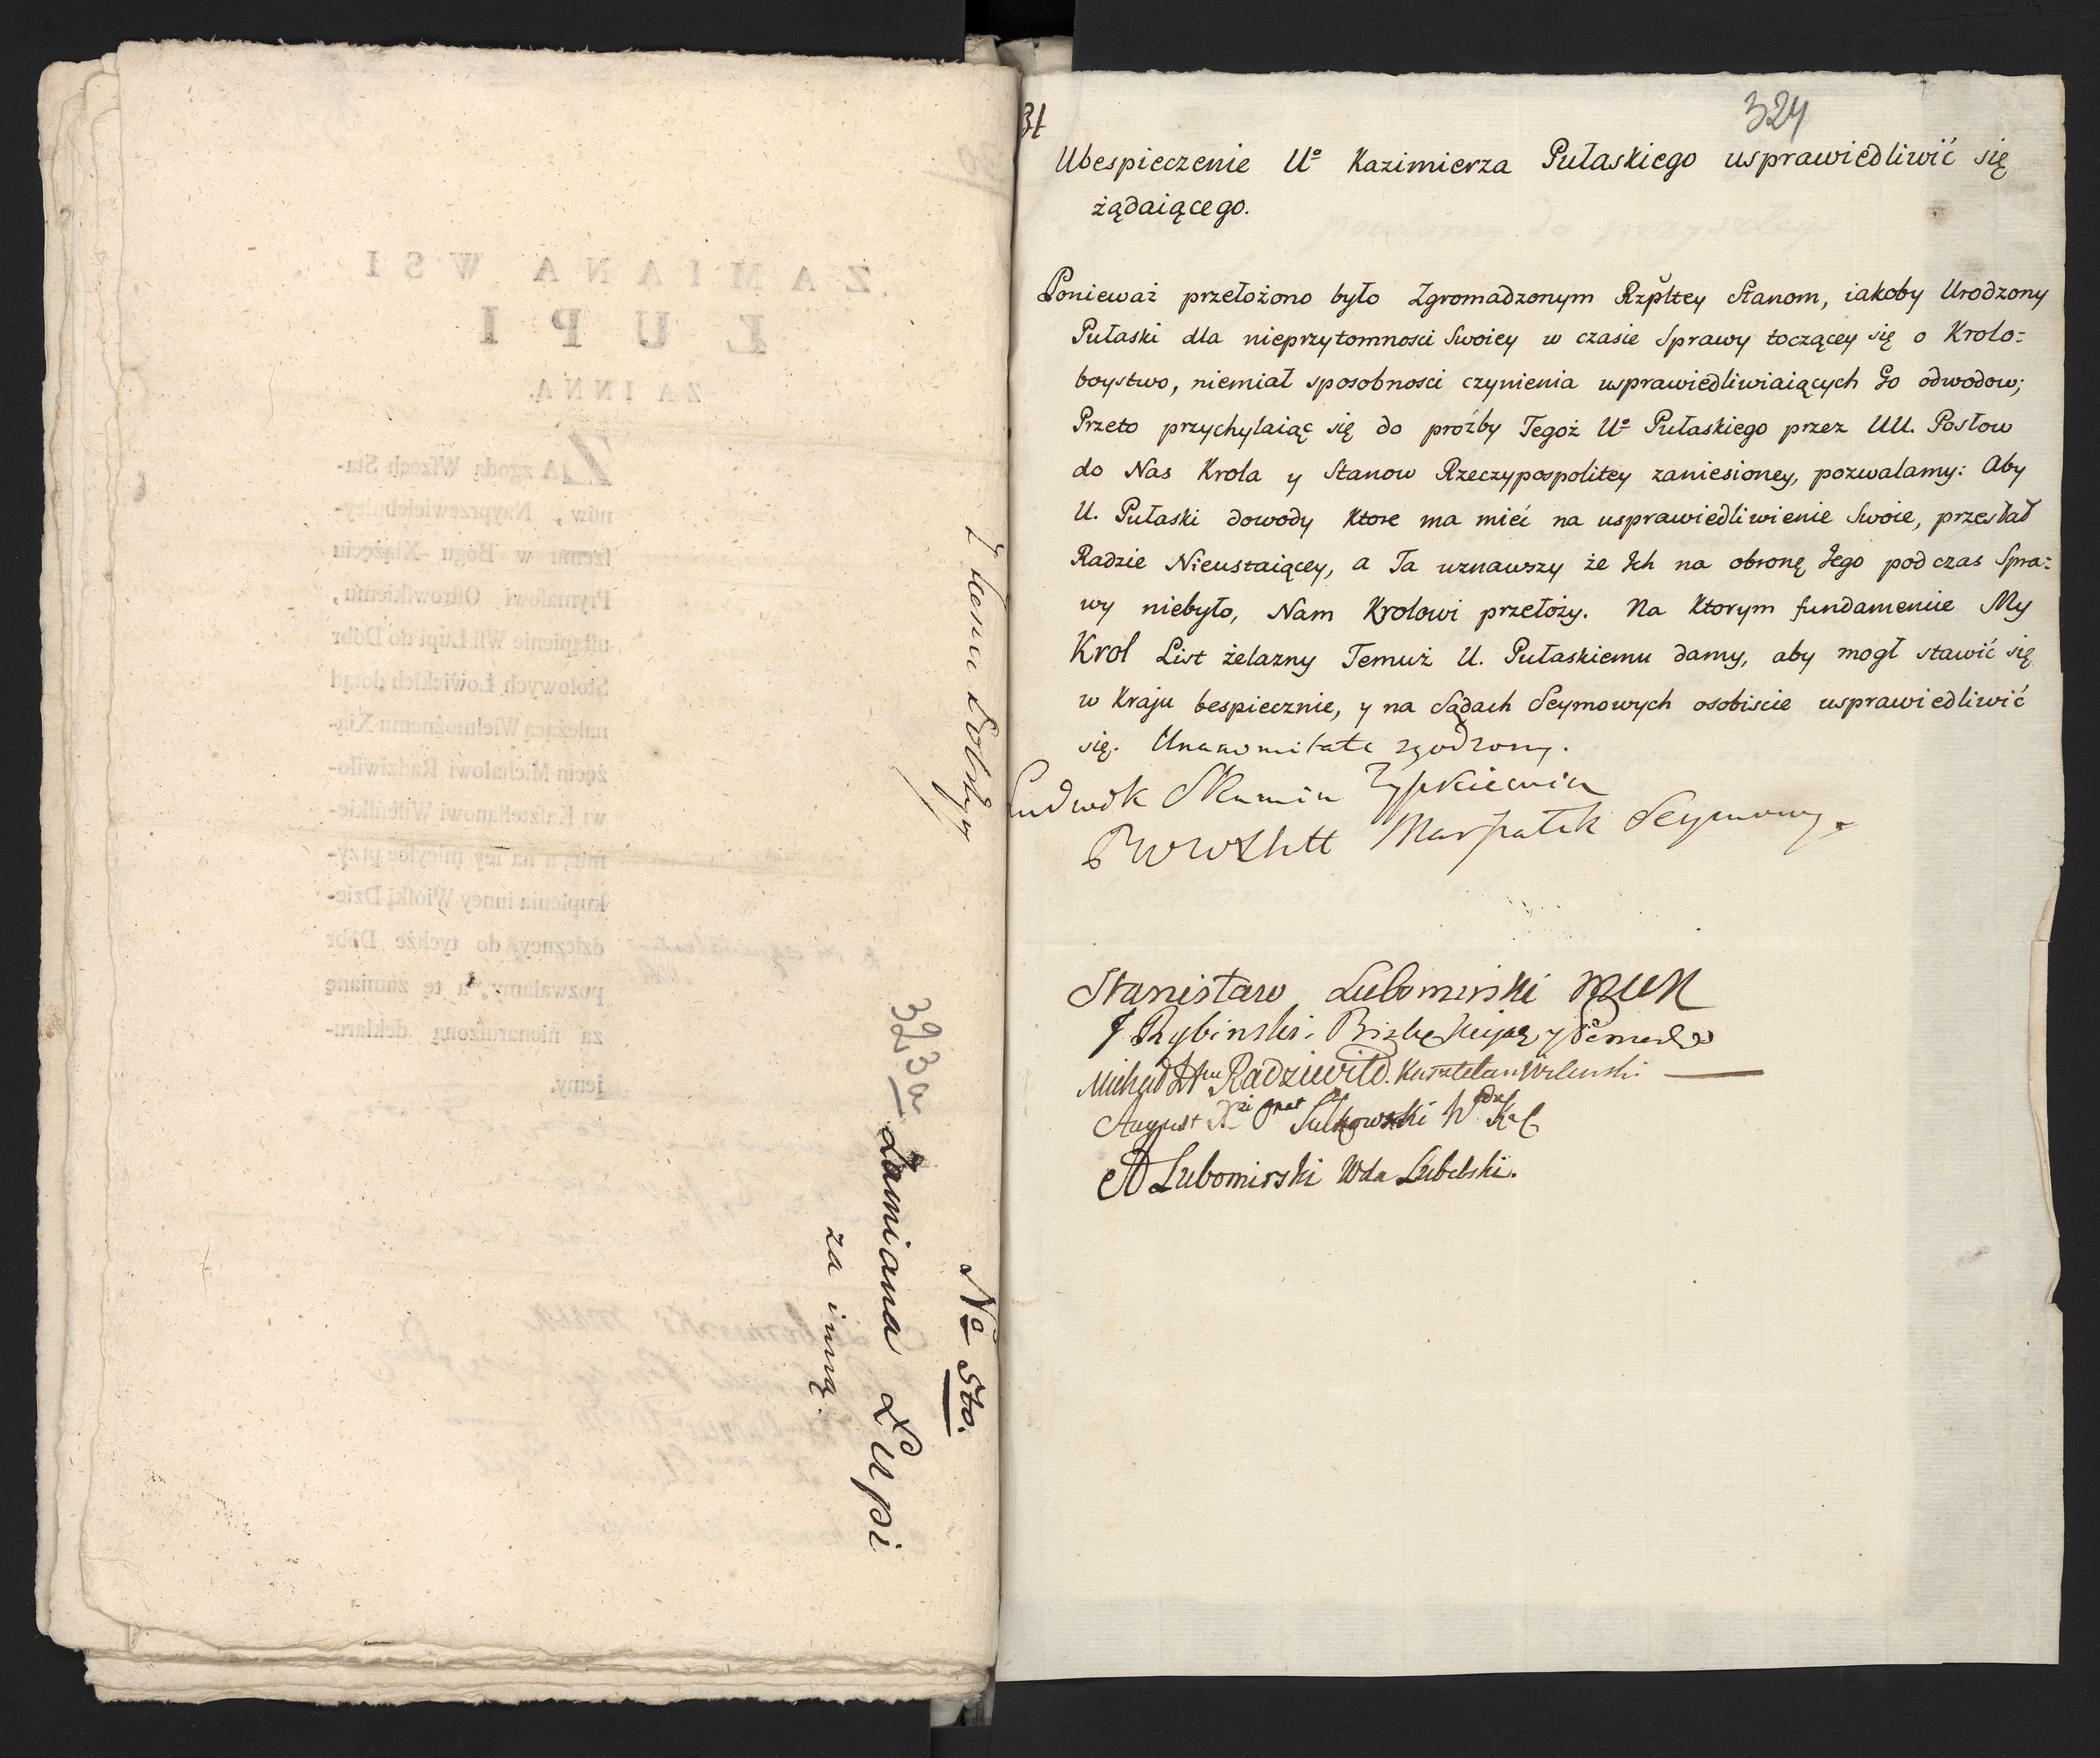 Z Xcia Łowicz
323a
Zamiana Łupi
za inną.
Nº 5to.
ZAMIANA WSI
ŁUPI
ZA INNĄ.
ZA zgodą Wszech Sta-
nów, Nayprzewielebniey-
szemu w Bogu Xiążęciu
Prymasowi Ostrowskiemu,
ustąpienie Wsi Łupi do Dóbr
Stołowych Łowickich dotąd
należącą Wielmożnemu Xią-
żęciu Michałowi Radziwiło-
wi Kasztellanowi Wileńskie-
mu, a na iey mieysce przy-
kupienia inney Wioski Dzie-
dziczney do tychże Dóbr
pozwalamy, a tę zamianę
za nienaruszoną deklaru-
jemy.
31
324
Ubespieczenie Uº Kazimierza Pułaskiego usprawiedliwić się
żądaiącego.
Ponieważ przełożono było Zgromadzonym Rzpltey Stanom, iakoby Urodzony
Pułaski dla nieprzytomnosci Swoiey w czasie Sprawy toczącey się o Krolo=
boystwo, niemiał sposobnosci czynienia usprawiedliwiaiących Go odwodow;
Przeto przychylaiąc się do prożby Tegoż Uº Pułaskiego przez UU. Posłow
do Nas Krola y Stanow Rzeczypospolitey zaniesioney, pozwalamy: Aby
U. Pułaski dowody ktore ma mieć na usprawiedliwienie Swoie, przesłał
Radzie Nieustaiącey, a Ta uznawszy że Ich na obronę Jego podczas Spra=
wy niebyło, Nam Krolowi przełoży. Na ktorym fundamencie My
Krol List żelazny Temuż U. Pułaskiemu damy, aby mogł stawić się
w Kraju bespiecznie, y na Sądach Seymowych osobiscie usprawiedliwić
się. Unanimitate zgodzony.
Ludwik Skumin Tyszkiewicz
Marszałek Seymowy
Stanisław Lubomirski MWK
J Rybinski Biskup Kujaw y Pomor
Michał Radziwiłł Kasztelan Wilenski
August Xże Sułkowski Wda Kal
A Lubomirski Wda Lubelski.